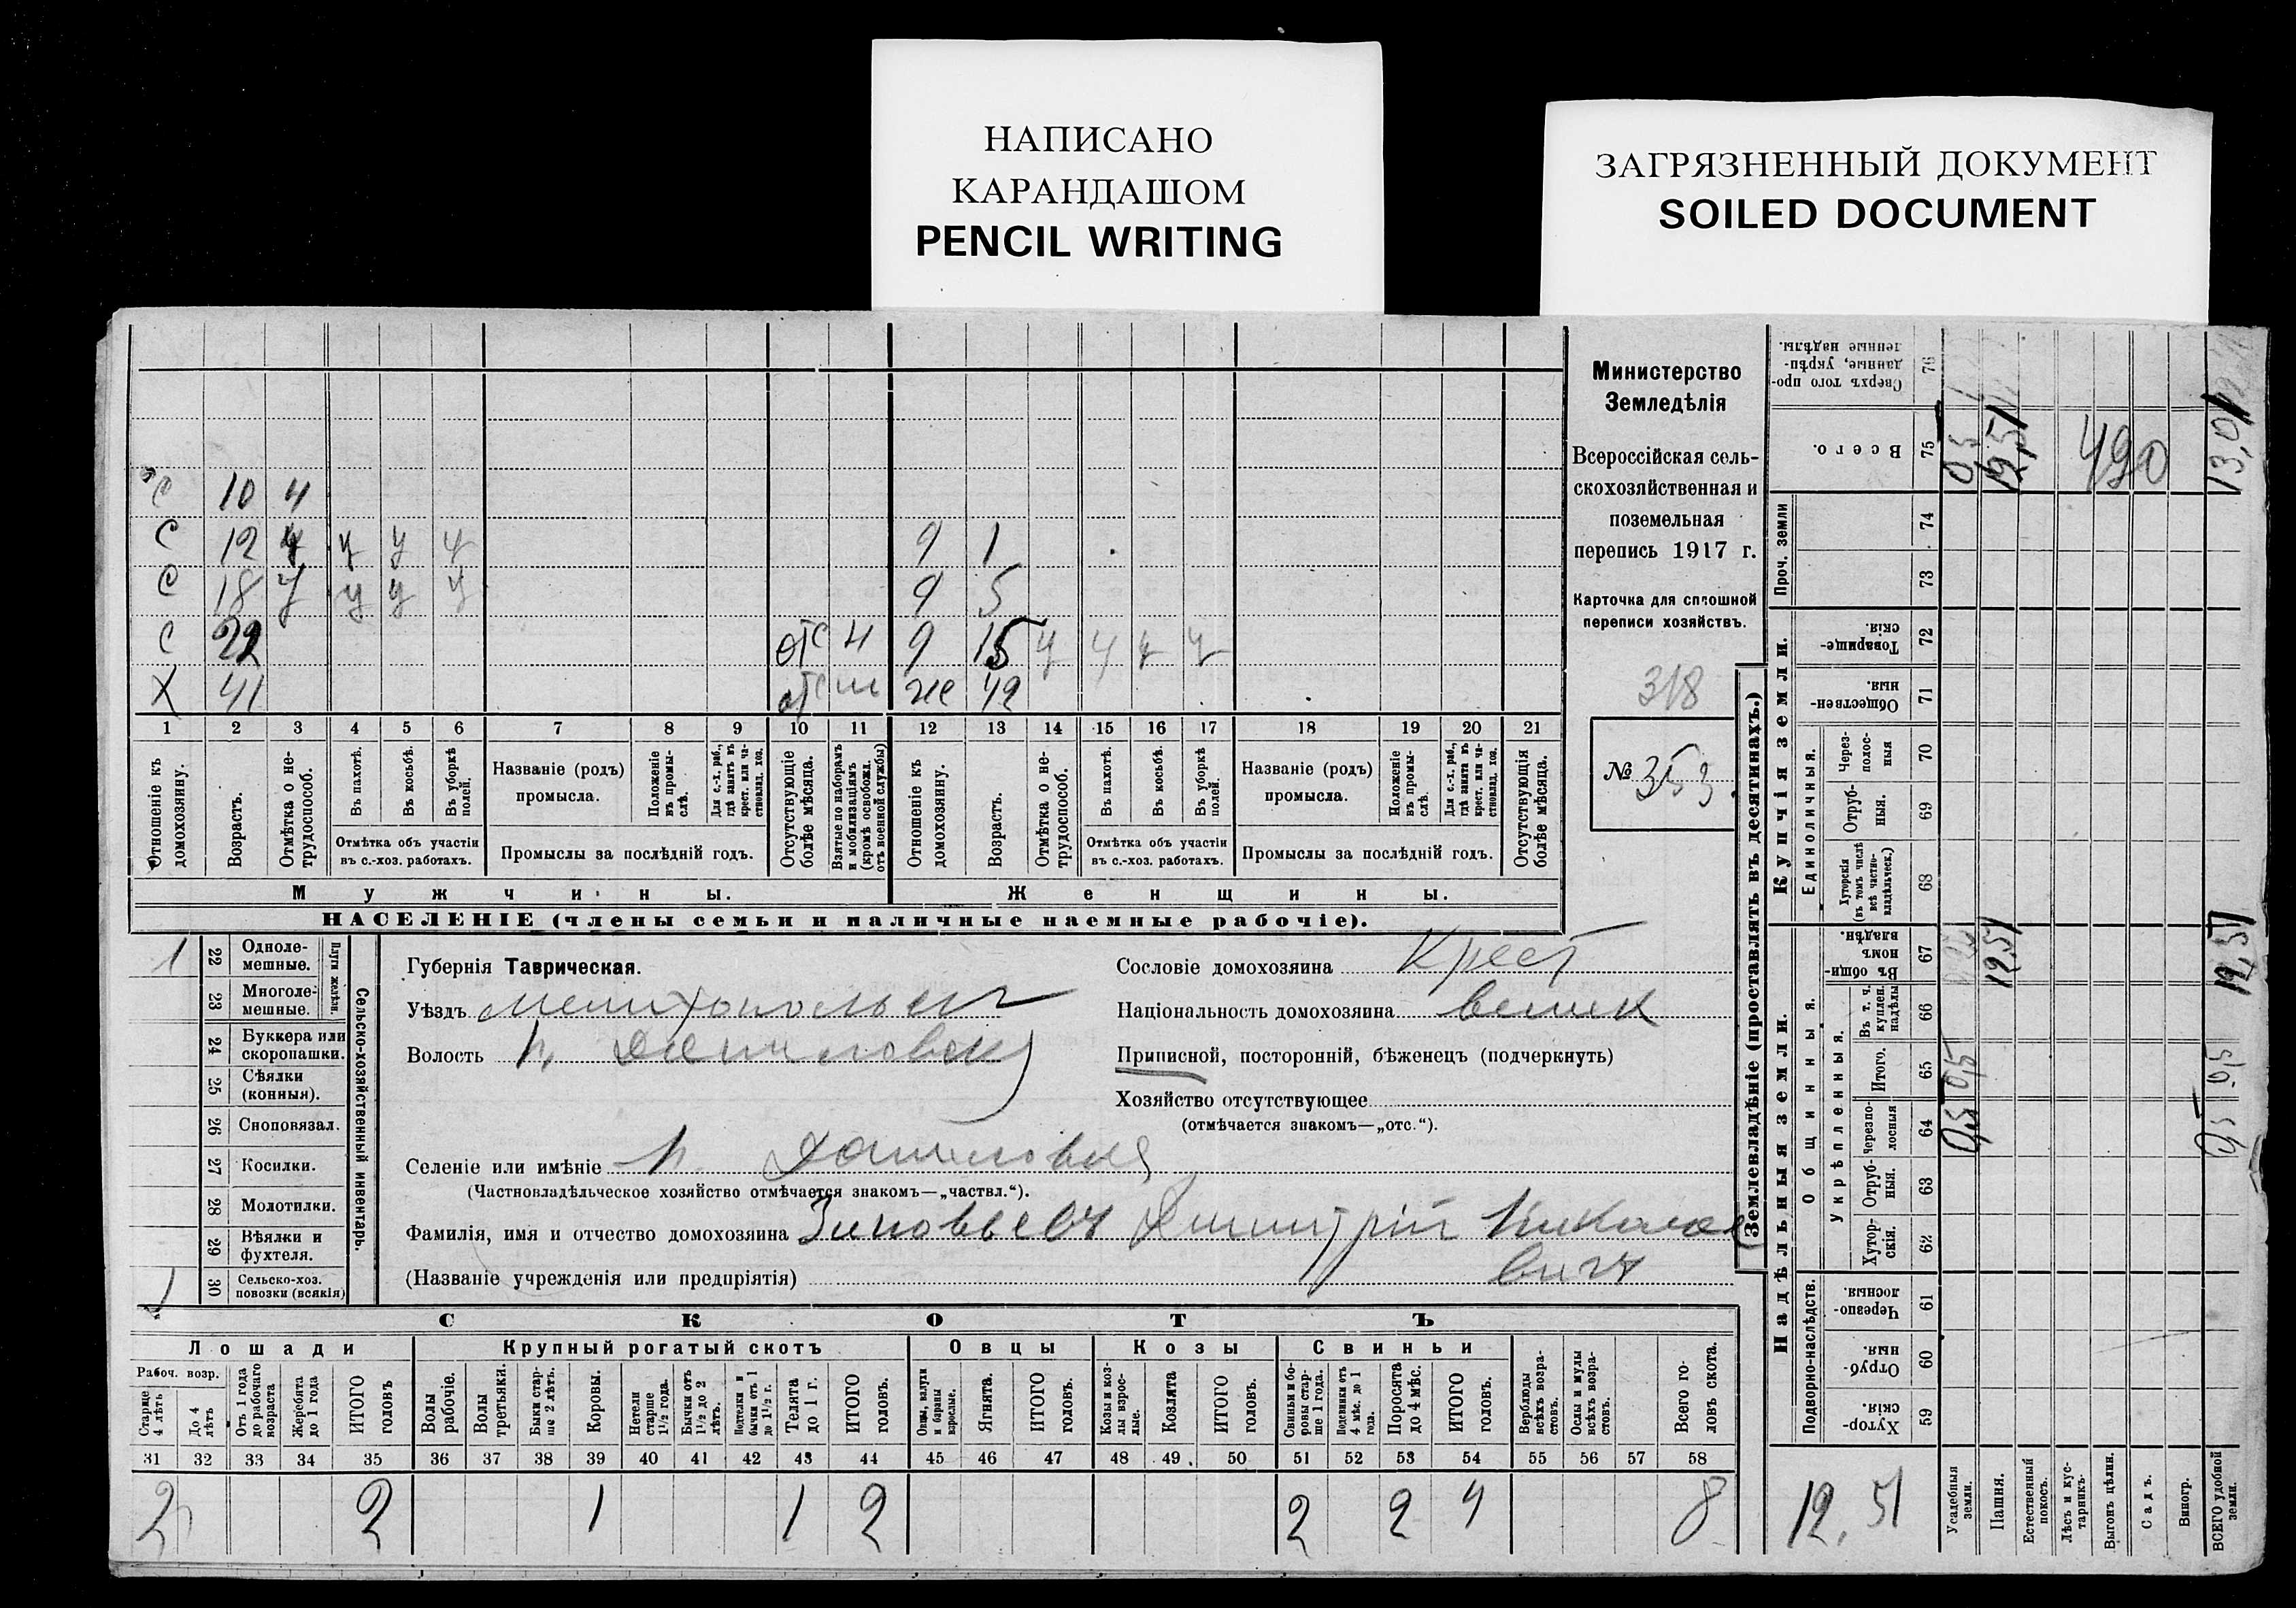 НАПИСАНО
КАРАНДАШОМ
PENCIL WRITING
ЗАГРЯЗНЕННЫЙ ДОКУМЕНТ
SOILED DOCUMENT
С 10 Ч
С 12 у у у 9 1
С 18 у у у у 9 5
С 22 отс н 9 15 у у у у
Х 41 отс же 42
1 2 3 4 5 6 7 8 9 10 11 12 13 14 15 16 17 18 19 20 21
Отношеніе къ домохозяину.
Возрастъ.
Отмѣтка о нетрудоспособ.
Въ пахотѣ.
Въ косьбѣ.
Въ уборкѣ полей.
Отмѣтка объ участіи
въ с.-хоз. работахъ.
Названіе (родъ)
промысла.
Положеніе въ промыслѣ.
Для с.-х. раб., гдѣ занятъ въ крест. или частновлад. хоз.
Промыслы за послѣдній годъ.
Отсутствующіе болѣе мѣсяца.
Взятые по наборамъ и мобилизаціямъ (кромѣ освобожд. отъ военной службы)
Отношеніе къ домохозяину.
Возрастъ.
Отмѣтка о нетрудоспособ.
Въ пахотѣ.
Въ косьбѣ.
Въ уборкѣ полей.
Отмѣтка объ участіи
въ с.-хоз. работахъ.
Названіе (родъ)
промысла.
Положеніе въ промыслѣ.
Для с.-х. раб., гдѣ занята въ крест. или частновлад. хоз.
Промыслы за послѣдній годъ.
Отсутствующія болѣе мѣсяца.
Мужчины.
Женщины.
НАСЕЛЕНІЕ (члены семьи и наличные наемные рабочіе).
Министерство
Земледѣлія
Всероссійская сель-
скохозяйственная и
поземельная
перепись 1917 г.
Карточка для сплошной
переписи хозяйствъ.
318
№ 353
1 22 Одноле-
мешные.
23 Многоле-
мешные.
Плуги желѣзн.
24 Буккера или
скоропашки.
25 Сѣялки
(конныя).
26 Сноповязал.
27 Косилки.
28 Молотилки.
29 Вѣялки и
фухтеля.
1 30 Сельско-хоз.
повозки (всякія)
Сельско-хозяйственный инвентарь.
Губернія Таврическая.
Уѣздъ Мелитопольск
Волость н. Даниловск
Селеніе или имѣніе н. Даниловка
(Частновладѣльческое хозяйство отмѣчается знакомъ—„частвл.“).
Фамилія, имя и отчество домохозяина Зиновьевъ Дмитрій Николае
(Названіе учрежденія или предпріятія) вичъ
Сословіе домохозяина Крест
Національность домохозяина велик
Приписной, посторонній, бѣженецъ (подчеркнуть)
Хозяйство отсутствующее
(отмѣчается знакомъ—„отс.“).
СКОТЪ
Лошади
Крупный рогатый скотъ
Овцы
Козы
Свиньи
Рабоч. возр.
Старше 4 лѣтъ
До 4 лѣтъ
Отъ 1 года до рабочаго возраста
Жеребята до 1 года
ИТОГО головъ
Волы рабочіе.
Волы третьяки.
Быки старше 2 лѣтъ.
Коровы.
Нетели старше 1½ года.
Бычки отъ 1½ до 2 лѣтъ.
Подтелки и бычки отъ 1 до 1½ г.
Телята до 1 г.
ИТОГО головъ.
Овцы, валухи и бараны взрослые.
Ягнята.
ИТОГО головъ.
Козы и козлы взрослые.
Козлята
ИТОГО головъ.
Свиньи и боровы старше 1 года.
Подсвинки отъ 4 мѣс. до 1 года.
Поросята до 4 мѣс.
ИТОГО головъ.
Верблюды всѣхъ возрастовъ.
Ослы и мулы всѣхъ возрастовъ.
Всего головъ скота.
31 32 33 34 35 36 37 38 39 40 41 42 43 44 45 46 47 48 49 50 51 52 53 54 55 56 57 58
2 2 1 1 2 2 2 4 8
Землевладѣніе (проставлять въ десятинахъ.)
Надѣльныя земли.
Купчія земли.
Подворно-наслѣдств.
Общинныя.
Укрѣпленныя.
Единоличныя.
Проч. земли
Хуторскія. 59
Отрубныя. 60
Черезполосныя. 61
Хуторскія. 62
Отрубн. 63
Черезполосныя 64
Итого. 65
Въ т. ч. куплен. надѣлы 66
Въ общиномъ владѣн. 67
Хуторскія (въ томъ числѣ всѣ частновладѣльческ.) 68
Отрубныя. 69
Черезполосныя 70
Общественныя. 71
Товарищескія. 72
73
74
Всего. 75
Сверхъ того проданные, укрѣпленные надѣлы. 76
Усадебныя земли.
Пашня.
Естественный покосъ.
Лѣсъ и кустарникъ.
Выгонъ цѣлин.
Садъ.
Виногр.
ВСЕГО удобной земли.
0,5 0,5
12,51 12,51
490
0,5 0,5 12,51 13,01
12,51